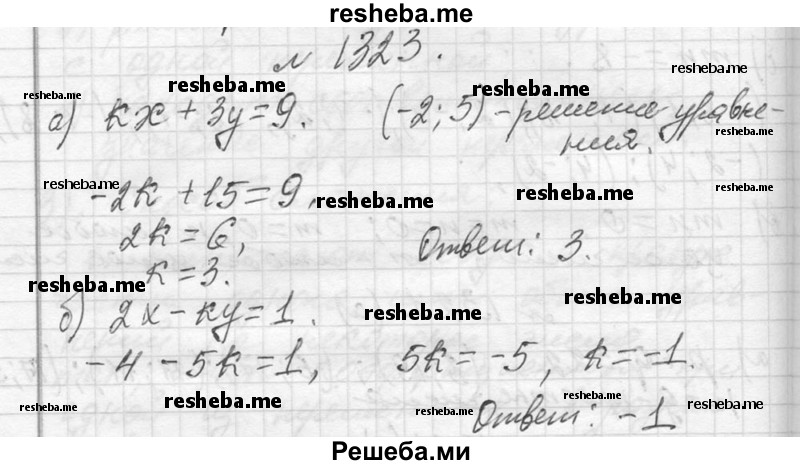 resheba.me
№ 1323.
resheba.me resheba.me resheba.me
а) кх + 3у = 9. (-2; 5) - решение уравне-
resheba.me
ния.
resheba.me resheba.me resheba.me
-2к + 15 = 9,
2к = 6, Ответ: 3.
к = 3.
resheba.me resheba.me resheba.me
б) 2х - ку = 1.
-4 - 5к = 1, 5к = -5, к = -1.
resheba.me resheba.me resheba.me resheba.me resheba.me
Ответ: -1
Решеба.ми